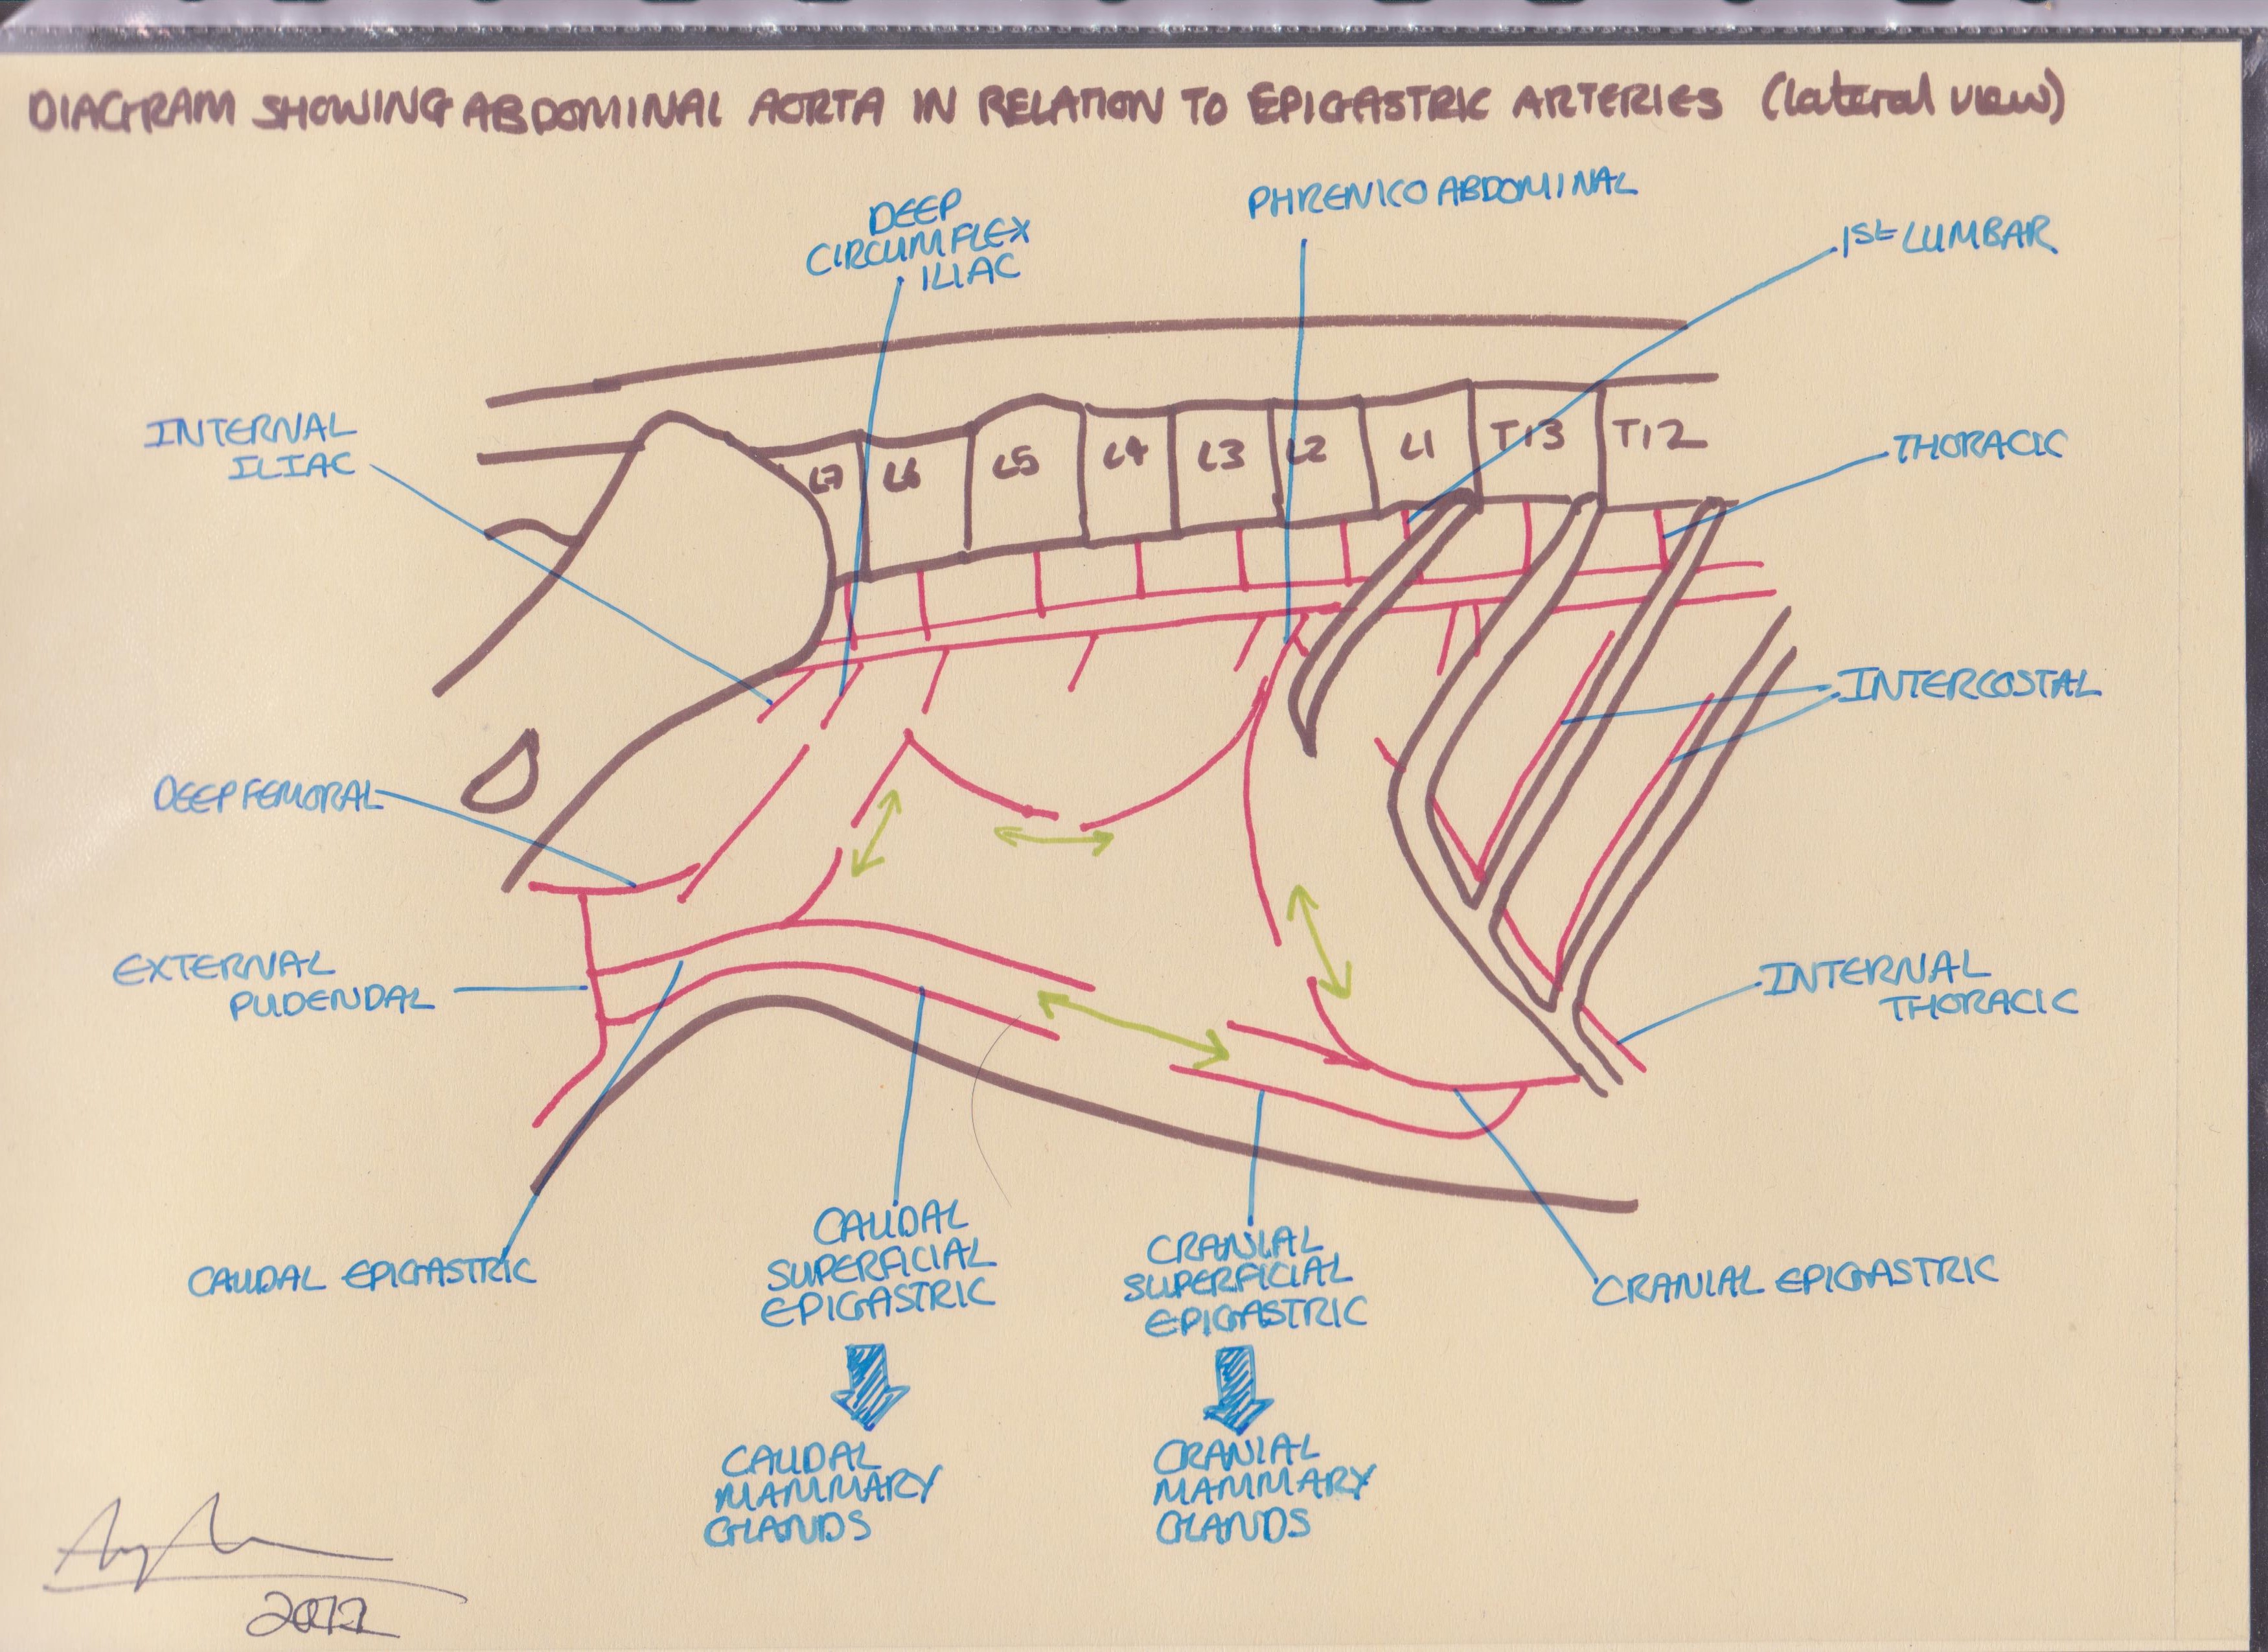 DIAGRAM SHOWING ABDOMINAL AORTA IN RELATION TO EPIGASTRIC ARTERIES (lateral view)
DEEP
CIRCUMFLEX
ILIAC
PHRENICOABDOMINAL
1St LUMBAR
INTERNAL
ILIAC
L7
L6
L5
L4
L3
L2
L1
T13
T12
THORACIC
INTERCOSTAL
DEEP FEMORAL
EXTERNAL
PUDENDAL
INTERNAL
THORACIC
CAUDAL EPIGASTRIC
CAUDAL
SUPERFICIAL
EPIGASTRIC
CRANIAL
SUPERFICIAL
EPIGASTRIC
CRANIAL EPIGASTRIC
CAUDAL
MAMMARY
GLANDS
CRANIAL
MAMMARY
GLANDS